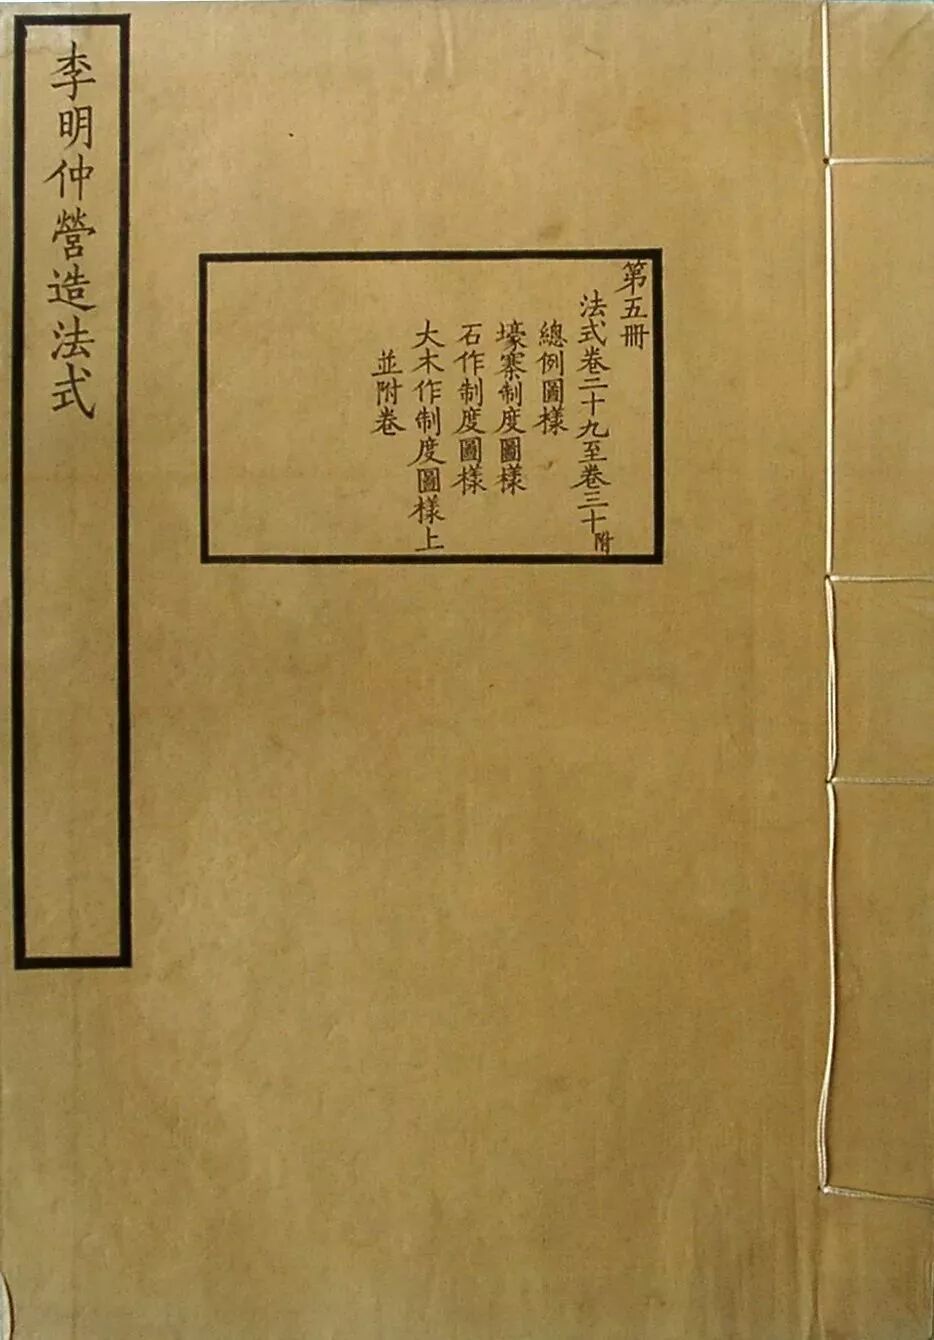 李明仲營造法式
第五冊
法式卷二十九至卷三十附
總例圖樣
壕寨制度圖樣
石作制度圖樣
大木作制度圖樣上
並附卷